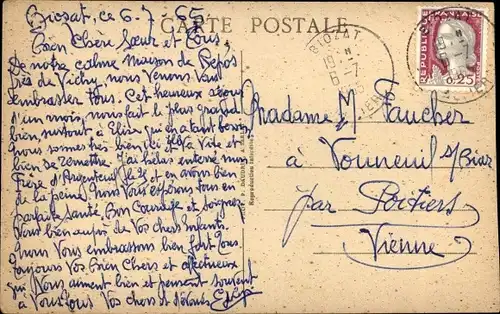 Biozat, ce 6-7 65
CARTE POSTALE
Bien Chère Sœur et Tous,
de notre calme Maison de Repos
près de Vichy nous Venons Vous
embrasser Tous. Cet heureux séjour
d'un mois, nous fait le plus grand
bien, surtout à Chère qui en a tant besoin
Nous sommes très bien ici
bien de remettre. J'ai hélas enterré mon
Frère d'Argenteuil et en avons bien
de la peine. Nous Vous espérons tous en
parfaite santé. Bon Courage et soignez
Vous bien auprès de Vos chers Enfants.
Nous Vous embrassons bien fort Tous
toujours Vos bien Chers et affectueux
qui Vous aiment bien et pensent souvent
à Vous Tous Vos chers et dévoués
Madame M. Faucher
à Vouneuil s/ Biard
par Poitiers
Vienne
BIOZAT
REPUBLIQUE FRANÇAISE
0,25